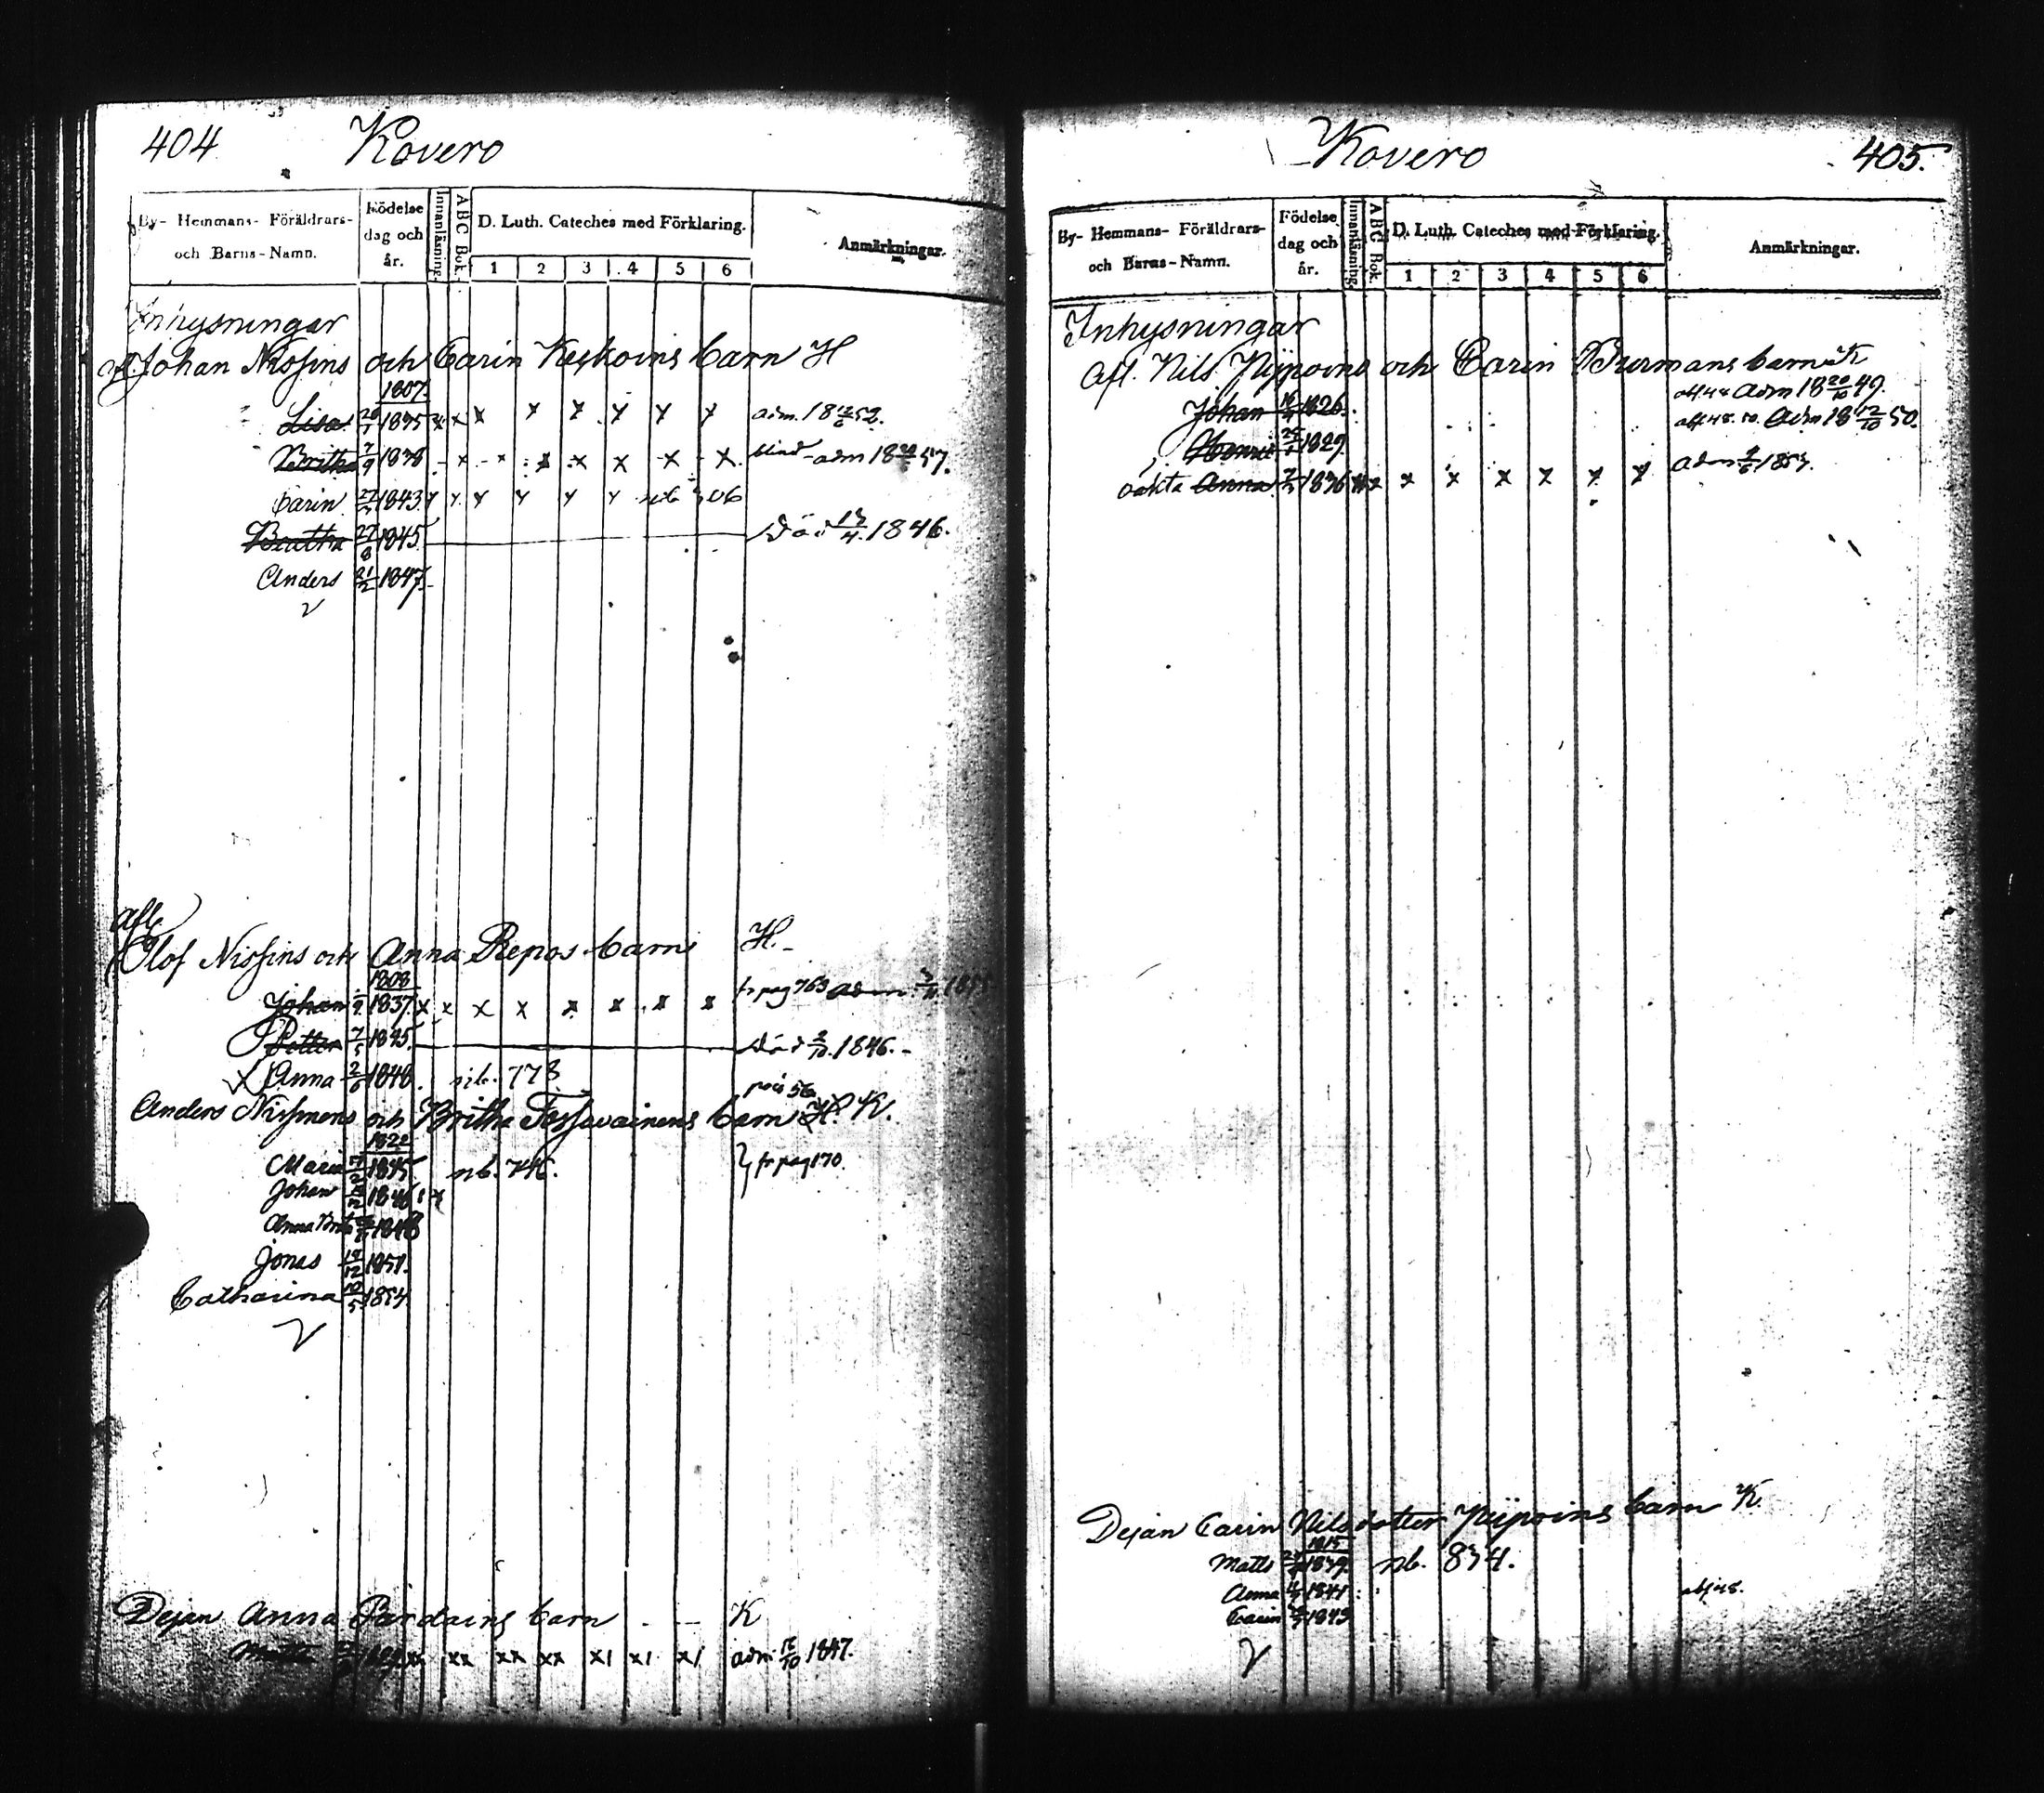 404 Kovero
By- Hemmans- Föräldrars- och Barns-Namn.
Födelse dag och år.
Innanläsning.
ABC Bok.
D. Luth. Cateches med Förklaring.
1 2 3 4 5 6
Anmärkningar.
Inhysningar
Johan Nissins och Carin Keskoins barn H
1807
Lisa 1835 x x x x x x x x adm. 18 52.
Britha 7/9 1838 x x x x x x x blind adm 18 57.
Carin 1843
Beatha 27/8 1845 Död 13/4. 1846.
Anders 21/2 1847
afl.
Olof Nissins och Anna Repos barn H.
1808
Johan 1837 x x x x x x x x fr pag 763 adm.
Petter 7/5 1845 Död 2/10. 1846.
Anna 2/6 1848. nb. 778
Anders Nissinens och Britha Tossavainens barn H. K.
1822
Maria 7/2 1845 nb. 746. fr pag 170.
Johan 1846 x
Anna Brita 1848
Jonas 19/12 1851.
Catharina 10/5 1854.
Dejan Anna Pardains barn K
Matts xx xx xx xx x1 x1 x1 adm 12/10 1847.
Kovero 405.
By- Hemmans- Föräldrars- och Barns-Namn.
Födelse dag och år.
Innanläsning.
ABC Bok.
D. Luth. Cateches med Förklaring.
1 2 3 4 5 6
Anmärkningar.
Inhysningar
Afl. Nils Nypoins och Carin Burmans barn K
Johan 1826. Adm 18 20/10 49.
1829. Adm 18 12/10 50.
oäkta Anna 1836 x x x x x x x adm
Dejan Carin Nilsdotter Nypoins barn K.
1815
Matts 1839. nb. 834.
Anna 1841
Carin 1843